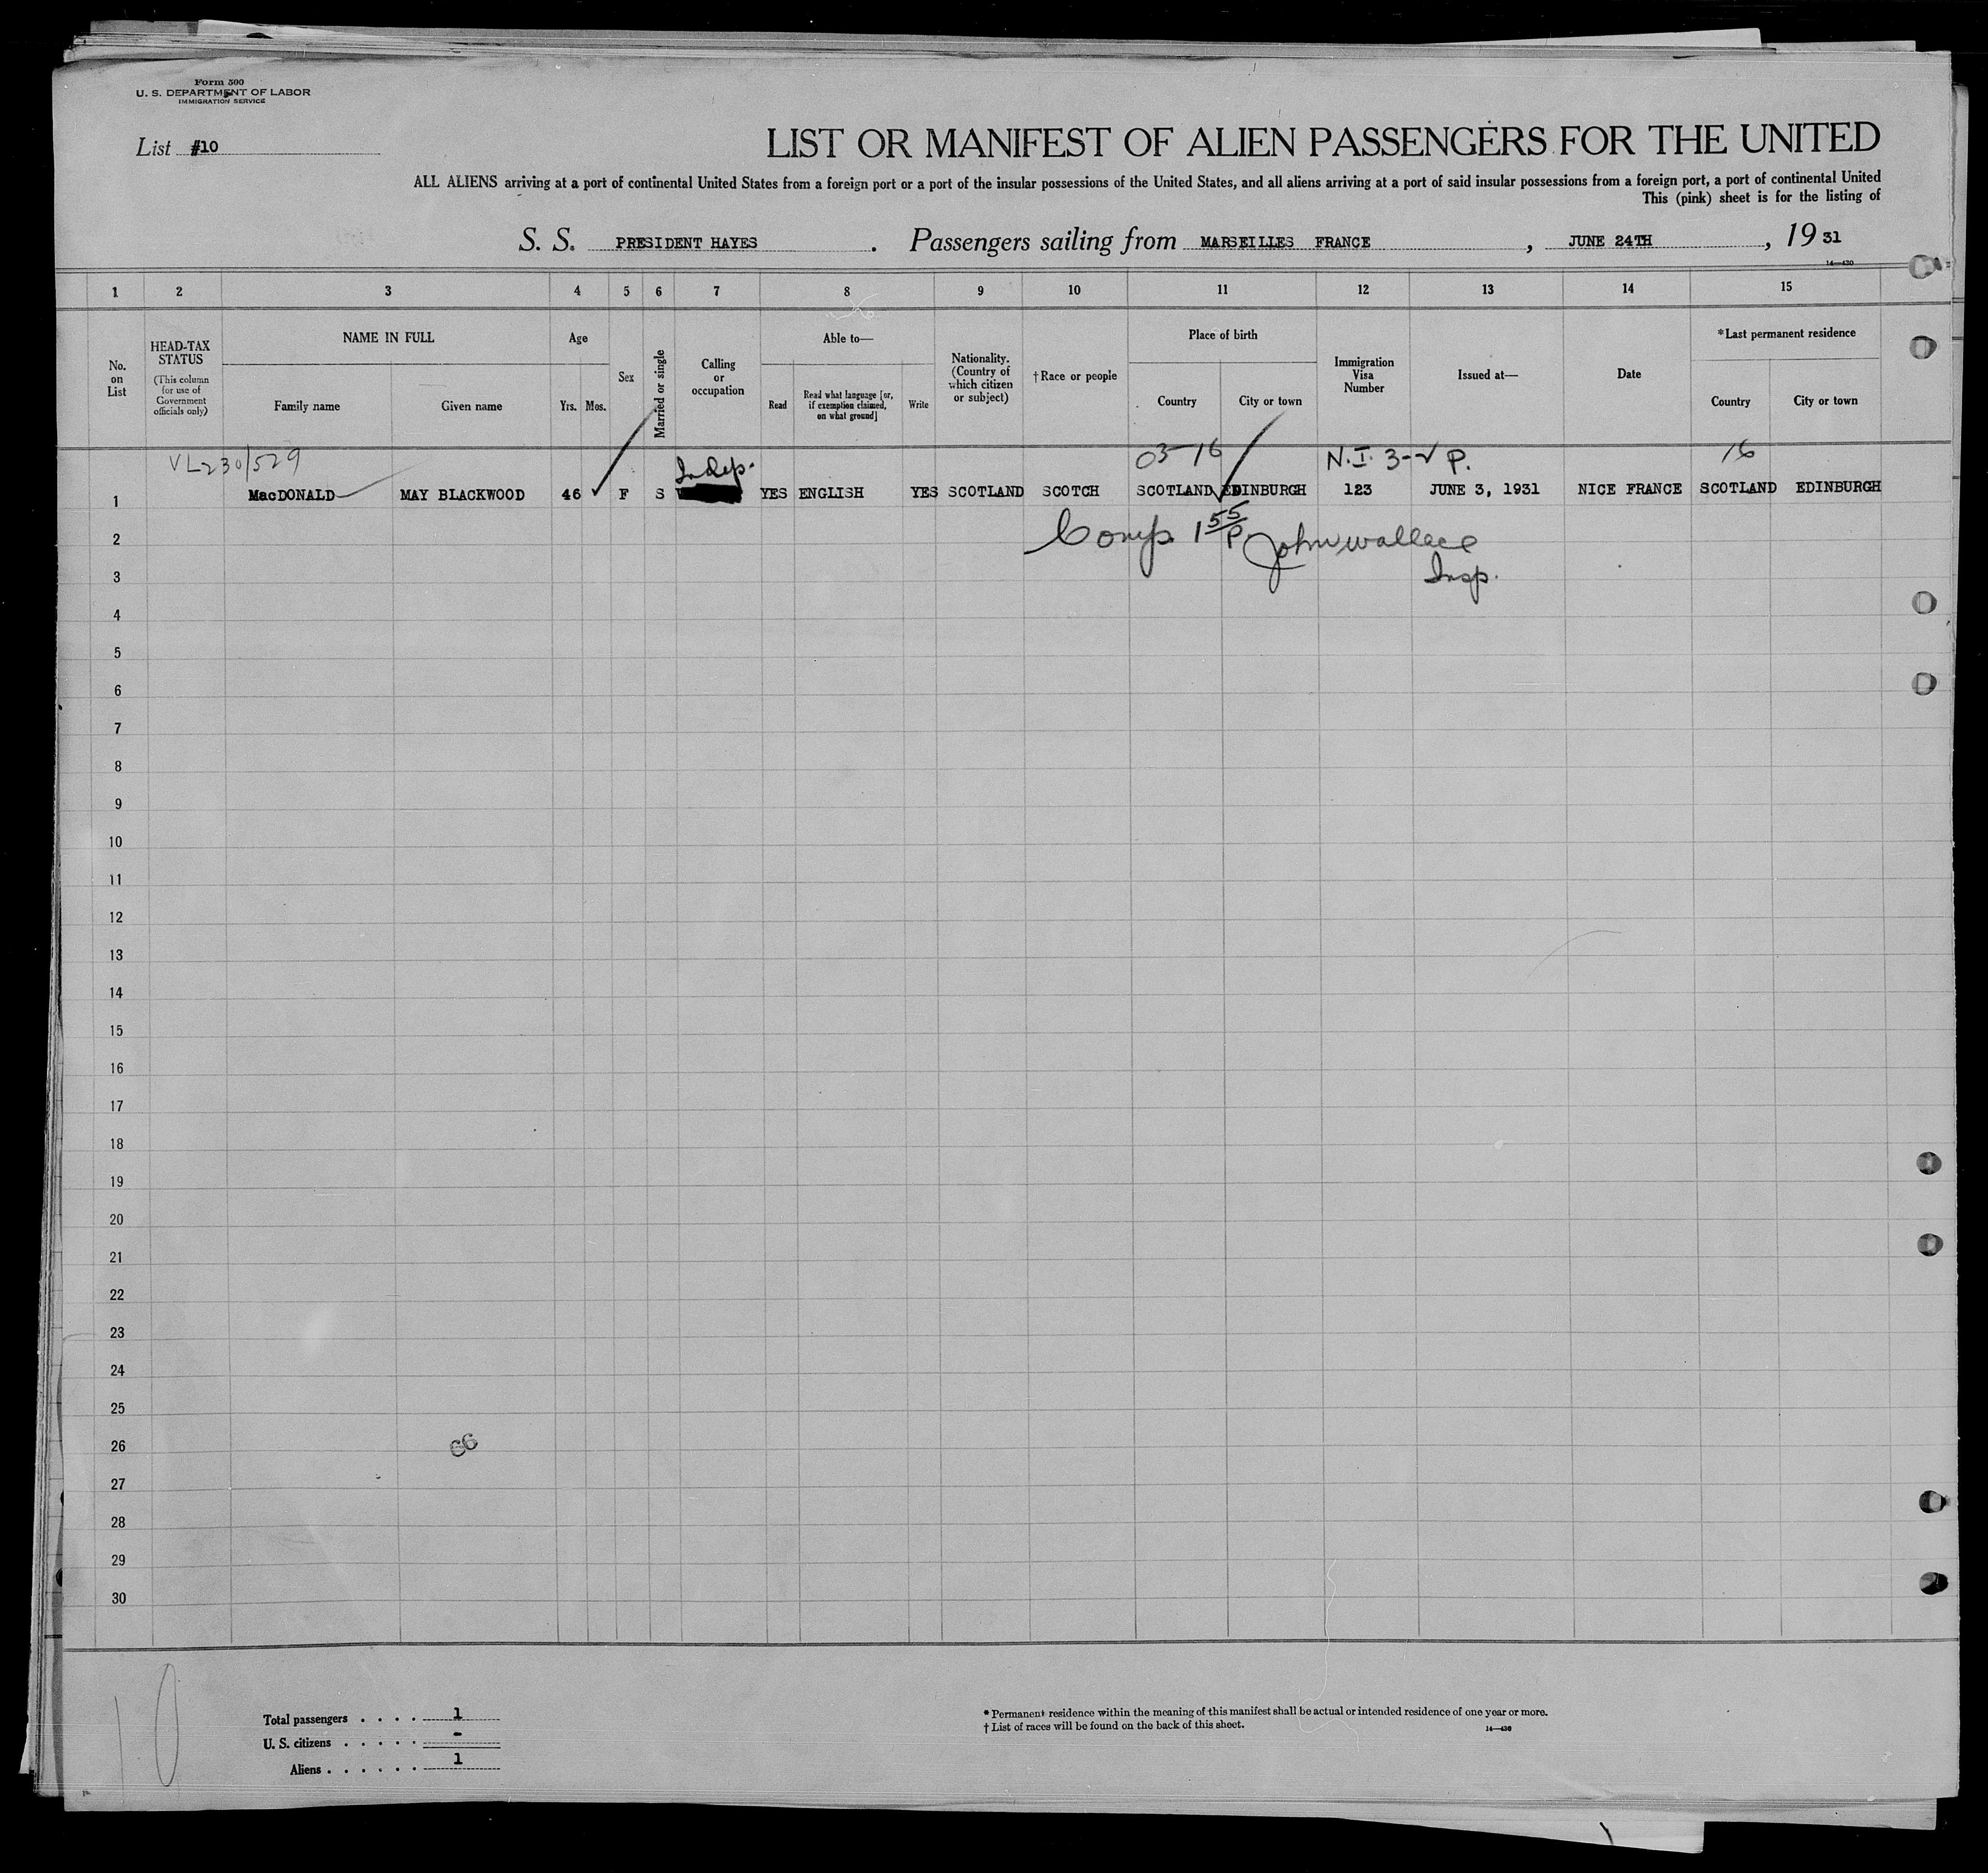 Form 500
U. S. DEPARTMENT OF LABOR
IMMIGRATION SERVICE
List #10
LIST OR MANIFEST OF ALIEN PASSENGERS FOR THE UNITED
ALL ALIENS arriving at a port of continental United States from a foreign port or a port of the insular possessions of the United States, and all aliens arriving at a port of said insular possessions from a foreign port, a port of continental United
This (pink) sheet is for the listing of
S. S. PRESIDENT HAYES. Passengers sailing from MARSEILLES FRANCE, JUNE 24TH, 19 31
14—430
1 2 3 4 5 6 7 8 9 10 11 12 13 14 15
No. on List
HEAD-TAX STATUS
(This column for use of Government officials only)
NAME IN FULL
Family name Given name
Age
Yrs. Mos.
Sex
Married or single
Calling or occupation
Able to—
Read
Read what language [or, if exemption claimed, on what ground]
Write
Nationality. (Country of which citizen or subject)
†Race or people
Place of birth
Country City or town
Immigration Visa Number
Issued at—
Date
*Last permanent residence
Country City or town
VL230/529 Indep. 03-16 N.I. 3-2 P. 16
1 MacDONALD MAY BLACKWOOD 46 F S YES ENGLISH YES SCOTLAND SCOTCH SCOTLAND EDINBURGH 123 JUNE 3, 1931 NICE FRANCE SCOTLAND EDINBURGH
2 Comp. 1 55/P John Wallace
3 Insp.
4
5
6
7
8
9
10
11
12
13
14
15
16
17
18
19
20
21
22
23
24
25
26 66
27
28
29
30
10
Total passengers . . . . 1
U. S. citizens . . . . . -
Aliens . . . . . . 1
* Permanent residence within the meaning of this manifest shall be actual or intended residence of one year or more.
† List of races will be found on the back of this sheet. 14—430